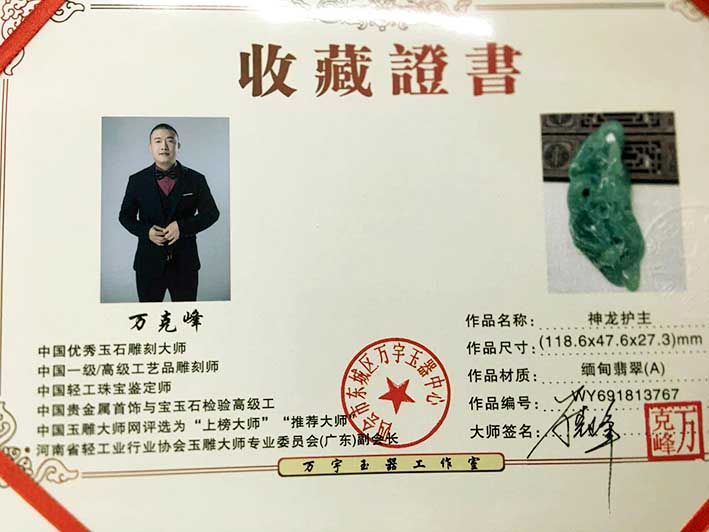 收藏證書
万克峰
中国优秀玉石雕刻大师
中国一级/高级工艺品雕刻师
中国轻工珠宝鉴定师
中国贵金属首饰与宝玉石检验高级工
中国玉雕大师网评选为“上榜大师”“推荐大师”
·河南省轻工业行业协会玉雕大师专业委员会(广东)副会长
作品名称: 神龙护主
作品尺寸: (118.6x47.6x27.3)mm
作品材质: 缅甸翡翠(A)
作品编号: WY691813767
大师签名: 万克峰
万克峰
四会市东城区万宇玉器中心
万宇玉器工作室